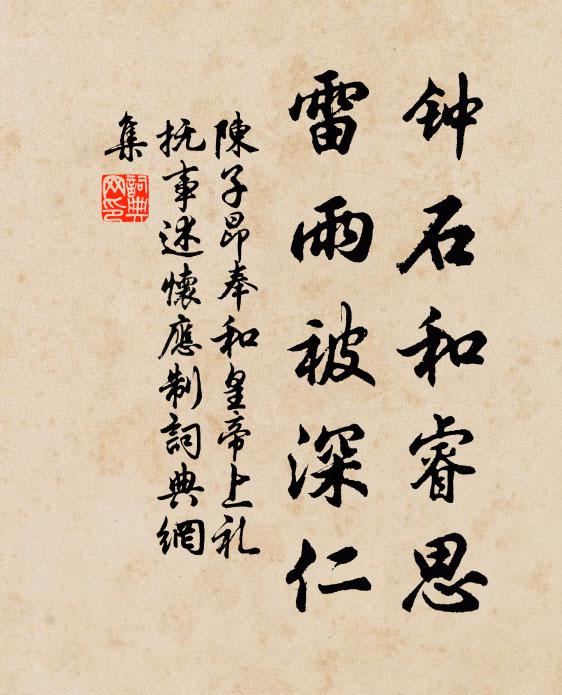 钟石和睿思
雷雨被深仁
陳子昂奉和皇帝上礼
抚事述懷應制詞典網
集
詞典网印